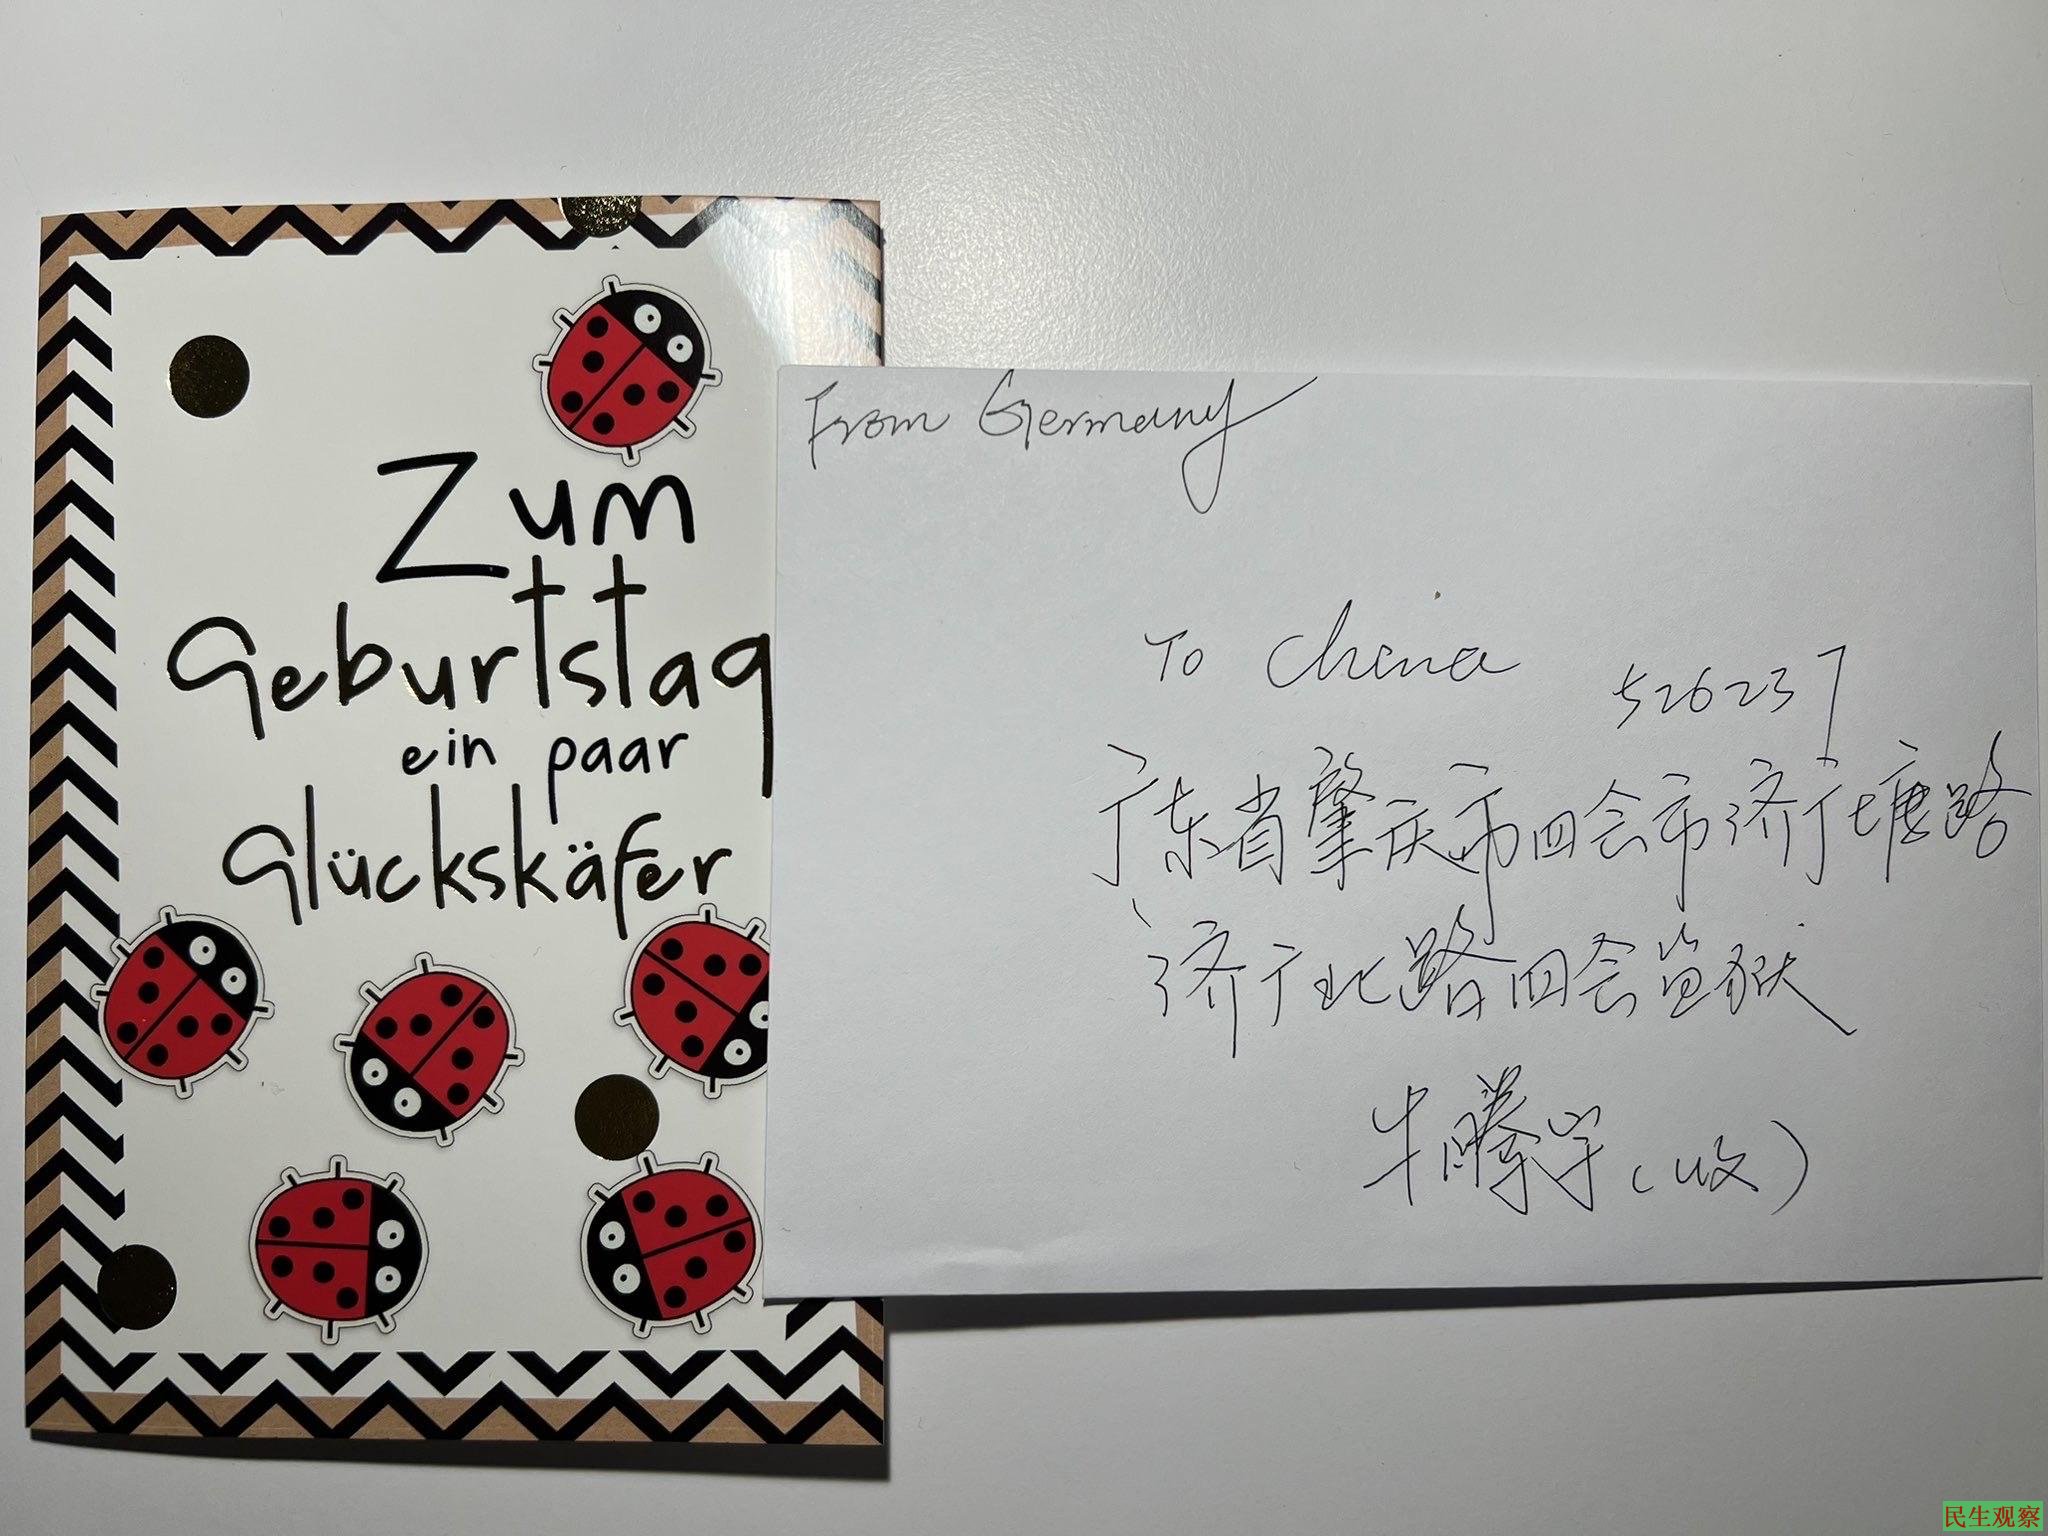 Zum
Geburtstag
ein paar
Glückskäfer
From Germany
To China
526237
广东省肇庆市四会市济广塘路
济广北路四会监狱
牛腾宇(收)
民生观察